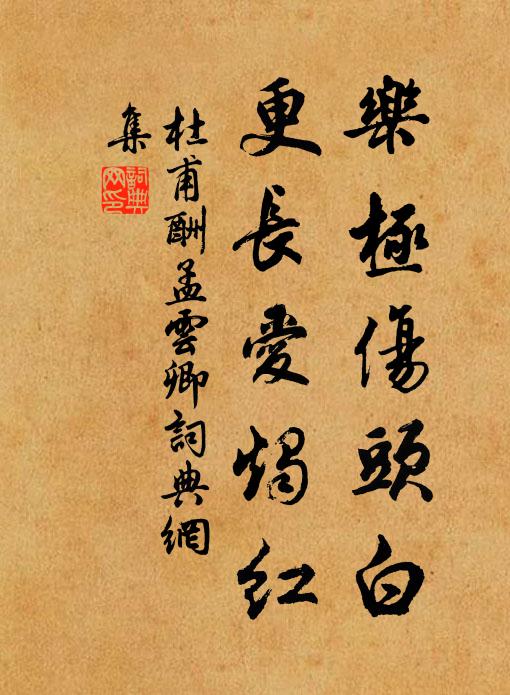 樂極傷頭白
更長愛燭紅
杜甫酬孟雲卿詞典網
集
詞典网印